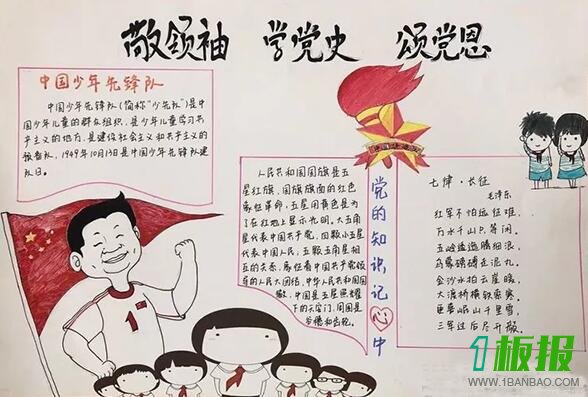 敬领袖 学党史 颂党恩
中国少年先锋队
中国少年先锋队(简称"少先队")是中
国少年儿童的群众组织,是少年儿童学习共
产主义的地方,是建设社会主义和共产主义的
预备队,1949年10月13日是中国少年先锋队建
队日。
人民共和国国旗是五
星红旗,国旗旗面的红色
象征革命,五星用黄色是为
了在红地上显示光明。大五角
星代表中国共产党,四颗小五星
代表中国人民,五颗五角星相
互的关系,象征着中国共产党领
导的人民大团结,中华人民共和国国
徽,中国是五星照耀
下的天安门,周围是
谷穗和齿轮。
党的知识记心中
七律·长征
毛泽东
红军不怕远征难,
万水千山只等闲。
五岭逶迤腾细浪,
乌蒙磅礴走泥丸。
金沙水拍云崖暖,
大渡桥横铁索寒。
更喜岷山千里雪,
三军过后尽开颜。
1
1板报
WWW.1BANBAO.COM